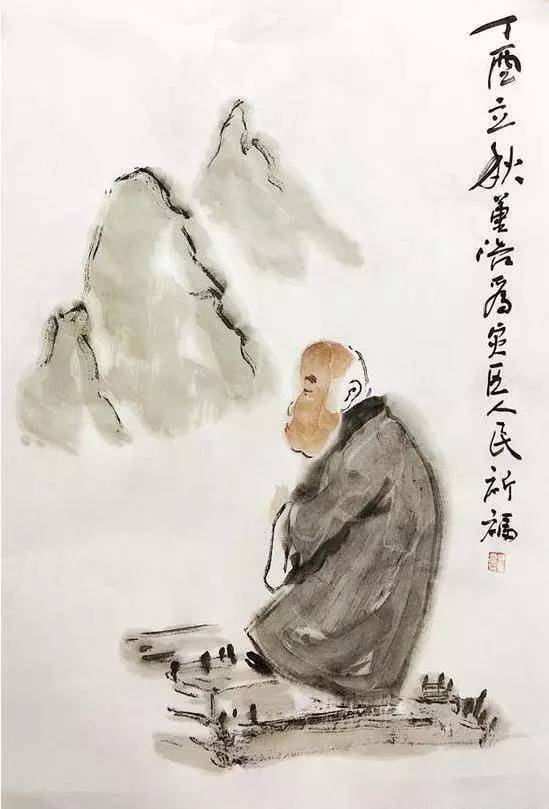 丁酉立秋董浩为灾区人民祈福